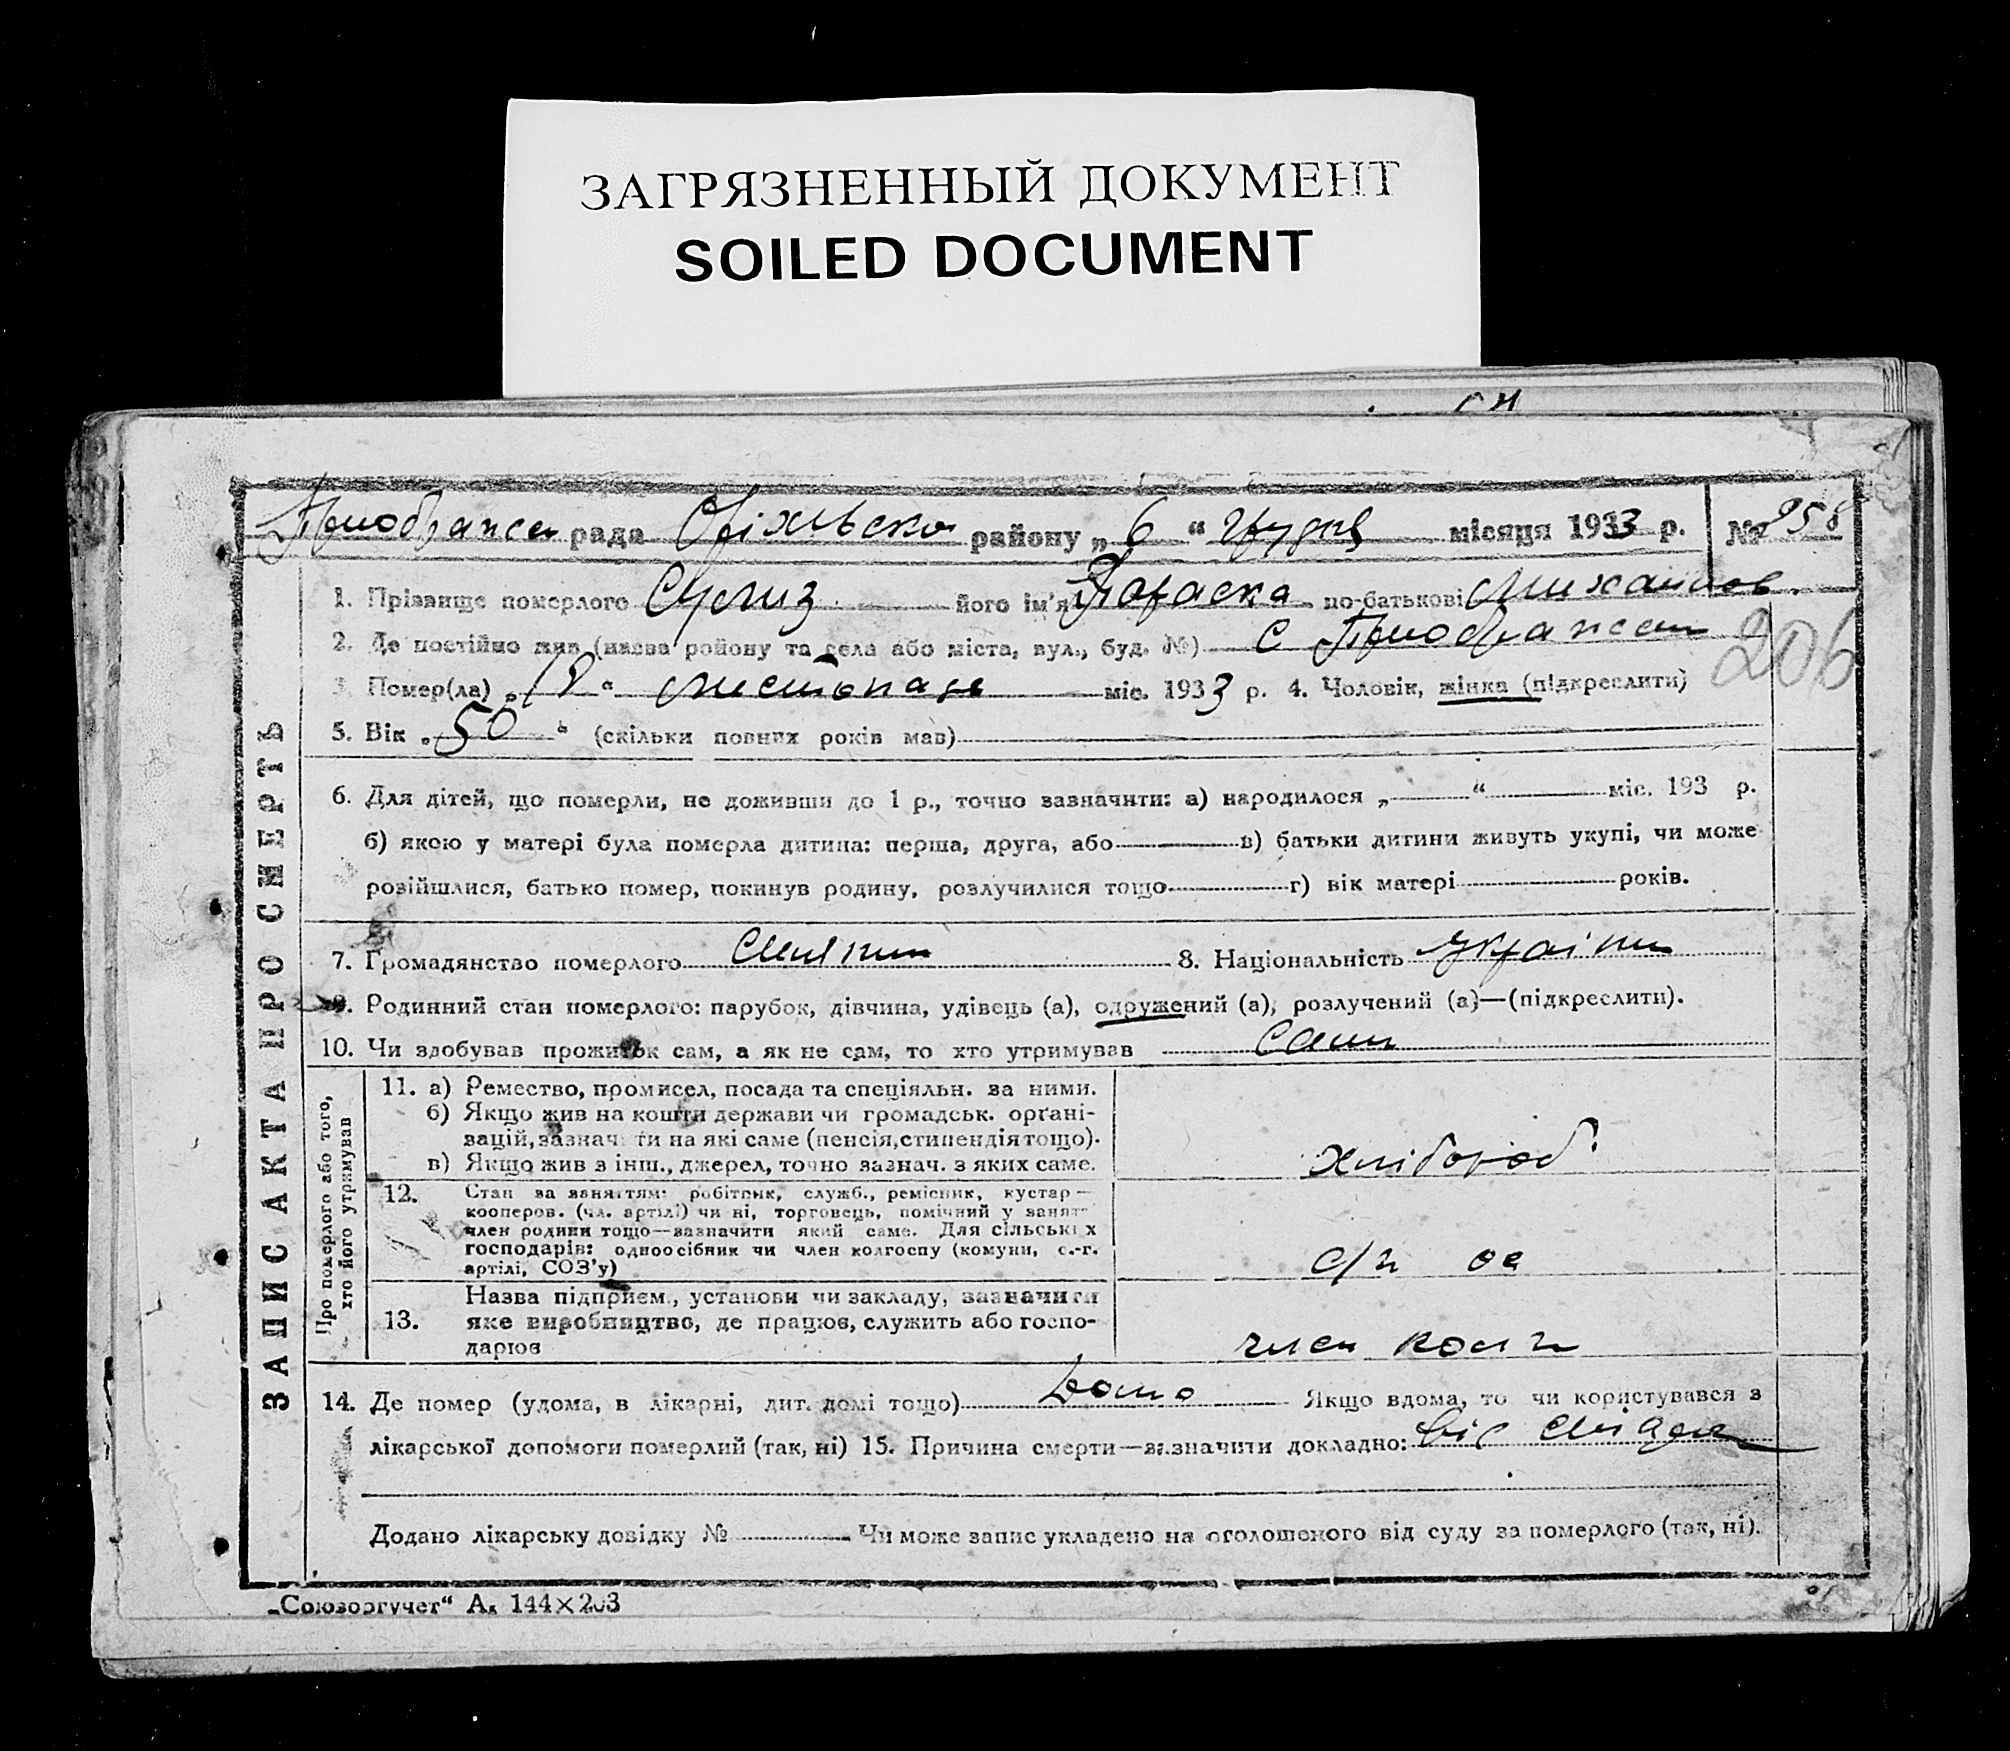 ЗАГРЯЗНЕННЫЙ ДОКУМЕНТ
SOILED DOCUMENT
рада Оріхівсько району „ 6 “ грудня місяця 1933 р. № 258
206
ЗАПИС АКТА ПРО СМЕРТЬ
1. Прізвище померлого його ім'я Параска по-батькові Михайлов.
2. Де постійно жив (назва району та села або міста, вул., буд. №) С
3. Помер(ла) „ “ листопада міс. 1933 р. 4. Чоловік, жінка (підкреслити)
5. Вік „ 50 “ (скільки повних років мав)
6. Для дітей, що померли, не доживши до 1 р., точно зазначити: а) народилося „ “ міс. 193 р.
б) якою у матері була померла дитина: перша, друга, або в) батьки дитини живуть укупі, чи може
розійшлися, батько помер, покинув родину, розлучилися тощо г) вік матері років.
7. Громадянство померлого 8. Національність Україн
9. Родинний стан померлого: парубок, дівчина, удівець (а), одружений (а), розлучений (а)—(підкреслити).
10. Чи здобував прожиток сам, а як не сам, то хто утримував сам
Про померлого або того,
хто його утримував
11. а) Ремество, промисел, посада та спеціяльн. за ними.
б) Якщо жив на кошти держави чи громадськ. орґані-
зацій, зазначити на які саме (пенсія, стипендія тощо).
в) Якщо жив з інш., джерел, точно зазнач. з яких саме.
хлібороб
12. Стан за заняттям: робітник, служб., ремісник, кустар—
кооперов. (чл. артілі) чи ні, торговець, помічний у занят-
член родини тощо—зазначити який саме. Для сільських
господарів: одноосібник чи член колгоспу (комуни, с.-г.
артілі, СОЗ'у)
с/г ос
13. Назва підприєм., установи чи закладу, зазначити
яке виробництво, де працює, служить або госпо-
дарює
член колг
14. Де помер (удома, в лікарні, дит. домі тощо) Дома Якщо вдома, то чи користувався з
лікарської допомоги померлий (так, ні) 15. Причина смерти—зазначити докладно: від
Додано лікарську довідку № Чи може запис укладено на оголошеного від суду за померлого (так, ні).
„Союзоргучет“ А. 144×203